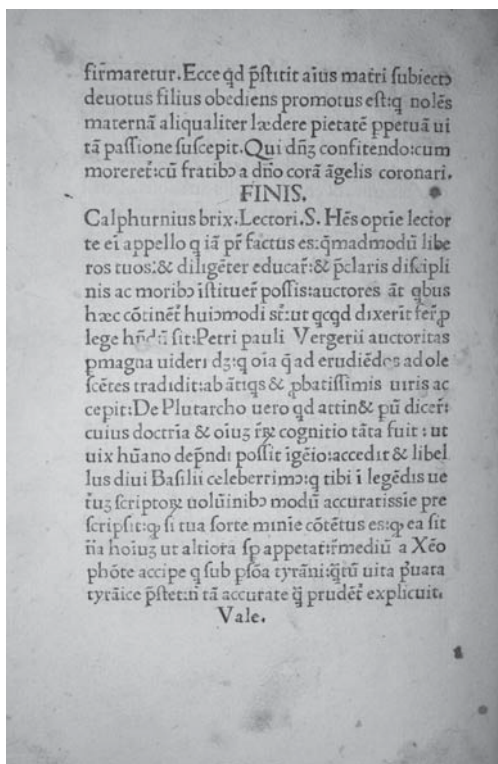 firmaretur.Ecce qd p̄stitit aīus matri subiectꝯ
deuotus filius obediens promotus est:q nolēs
maternā aliqualiter lædere pietatē ppetuā ui
tā passione suscepit.Qui dn̄ꝫ confitendo:cum
moreret̄:cū fratibꝯ a dn̄o corā āgelis coronari.
FINIS.
Calphurnius brix.Lectori.S. Hēs optīe lector
te ei appello q iā pr̄ factus es:q̄madmodū libe
ros tuos:& diligēter educar̄:& p̄claris discipli
nis ac moribꝯ īstituer̄ possis:auctores āt qbus
hæc cōtinēt̄ huiꝯmodi st̄:ut qcqd dixerīt fer̄ p
lege hn̄dū sit:Petri pauli Vergerii auctoritas
pmagna uideri dꝫ:q oīa q̄ ad erudiēdos adole
scētes tradidit:ab ātiqs & pbatissimis uiris ac
cepit:De Plutarcho uero qd attin& pū dicer̄:
cuius doctrīa & oīuꝫ r̄ꝝ cognitio tāta fuit: ut
uix hūano dep̄ndi possit īgeīo:accedit & libel
lus diui Basilii celeberrimꝯ:q tibi ī legēdis ue
t̄uꝫ scriptoꝝ uolūinibꝯ modū accuratissīe pre
scripsit:ꝙ si tua sorte minīe cōtētus es:ꝙ ea sit
n̄a hoīuꝫ ut altiora sp appetat:r̄mediū a Xēo
phōte accipe q sub psōa tyrāni:q̄tū uita p̄uata
tyrāīce p̄stet:n̄ tā accurate q̄ prudēt̄ explicuit.
Vale.